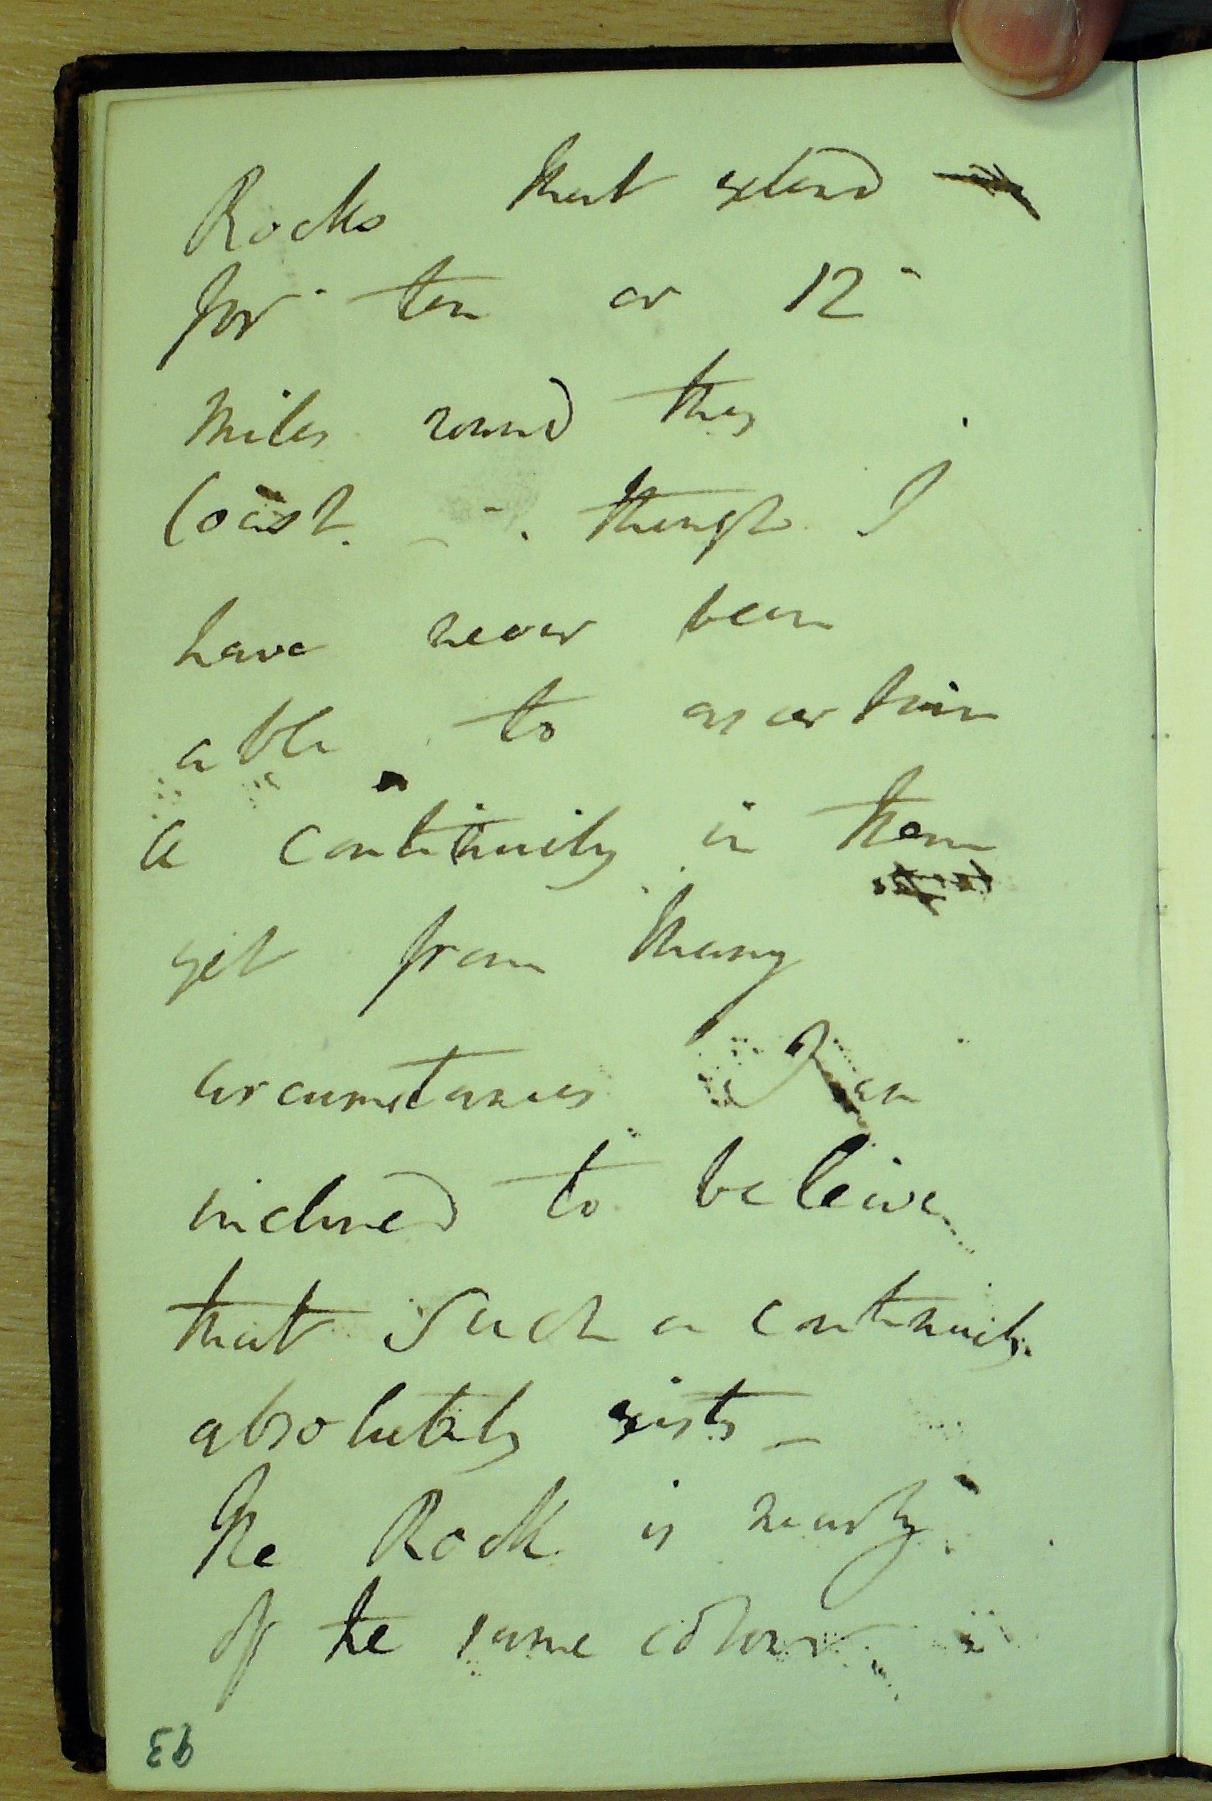 Rocks that extend
for ten or 12
Miles round this
Coast. - though I
have never been
able to ascertain
a continuity in them
yet from many
circumstances I am
inclined to beleive
that such a continuity
absolutely exists _
The Rock is nearly
of the same colour
93